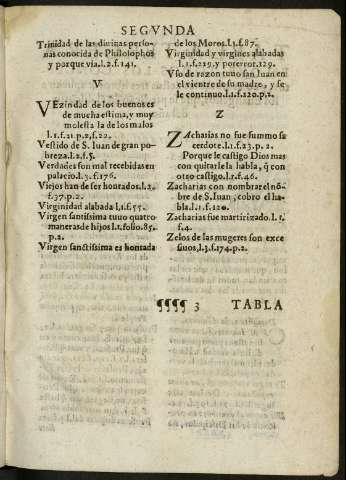 SEGVNDA
Trinidad de las diuinas perso-
nas conocida de Philosophos
y porque via.l.2.f.141.
V
VEzindad de los buenos es
de mucha estima, y muy
molesta la de los malos
l.1.f.21.p.2,f.22.
Vestido de S. Iuan de gran po-
breza.l.2.f.5.
Verdades son mal recebidas en
palacio.l.3.f.176.
Viejos han de ser honrados.l.2.
f.37.p.2.
Virginidad alabada l.1.f.55.
Virgen santissima tuuo quatro
maneras de hijos l.1.folio.85.
p.2.
Virgen sanctissima es hontada
de los Moros.l.1.f.87.
Virginidad y virgines alabadas
l.1.f.219.y poterror.129.
Vso de razon tuuo san Iuan en
el vientre de su madre, y se
le continuo.l.1.f.120.p.2.
Z
ZAcharias no fue summo sa
cerdote.l.1.f.23.p.2.
Porque le castigo Dios mas
con quitarle la habla, q̃ con
otro castigo.l.1.f.46.
Zacharias con nombrar el nõ-
bre de S. Iuan, cobro el ha-
bla.l.1.f.120.
Zacharias fue martirizado.l.1.
f.4.
Zelos de las mugeres son exce
ssiuos.l.3.f.174.p.2.
¶¶¶¶ 3 TABLA